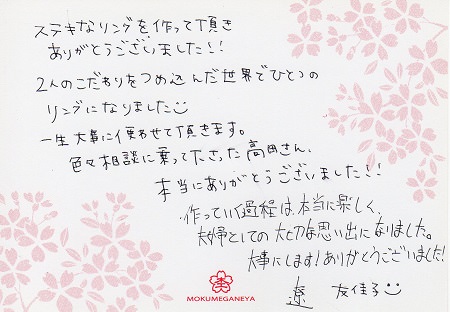 ステキなリングを作って頂き
ありがとうございました!!
2人のこだわりをつめ込んだ世界でひとつの
リングになりました
一生大事に使わせて頂きます。
色々相談に乗って下さった高田さん、
本当にありがとうございました!!
作っていく過程は本当に楽しく、
夫婦としての大切な思い出になりました。
大事にします!ありがとうございました!
遼 友佳子
MOKUMEGANEYA